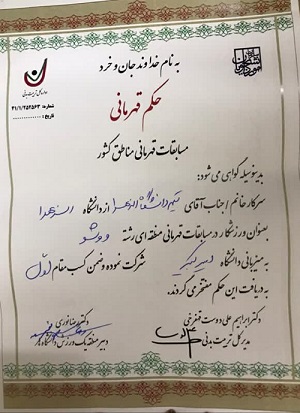 به نام خداوند جان و خرد
اداره کل تربیت بدنی
شماره: ۴۱/۱/۲۵۲۵۶۳
تاریخ:
حکم قهرمانی
مسابقات قهرمانی مناطق کشور
بدینوسیله گواهی می شود:
سرکار خانم / جناب آقای تیم دانشگاه الزهرا از دانشگاه الزهرا
بعنوان ورزشکار در مسابقات قهرمانی منطقه ای رشته ووشو
به میزبانی دانشگاه امیرکبیر شرکت نموده و ضمن کسب مقام اول
به دریافت این حکم مفتخر می گردند.
دکتر رضا نوری
دبیر منطقه یک ورزش دانشگاه ها
دکتر ابراهیم علی دوست قهفرخی
مدیر کل تربیت بدنی